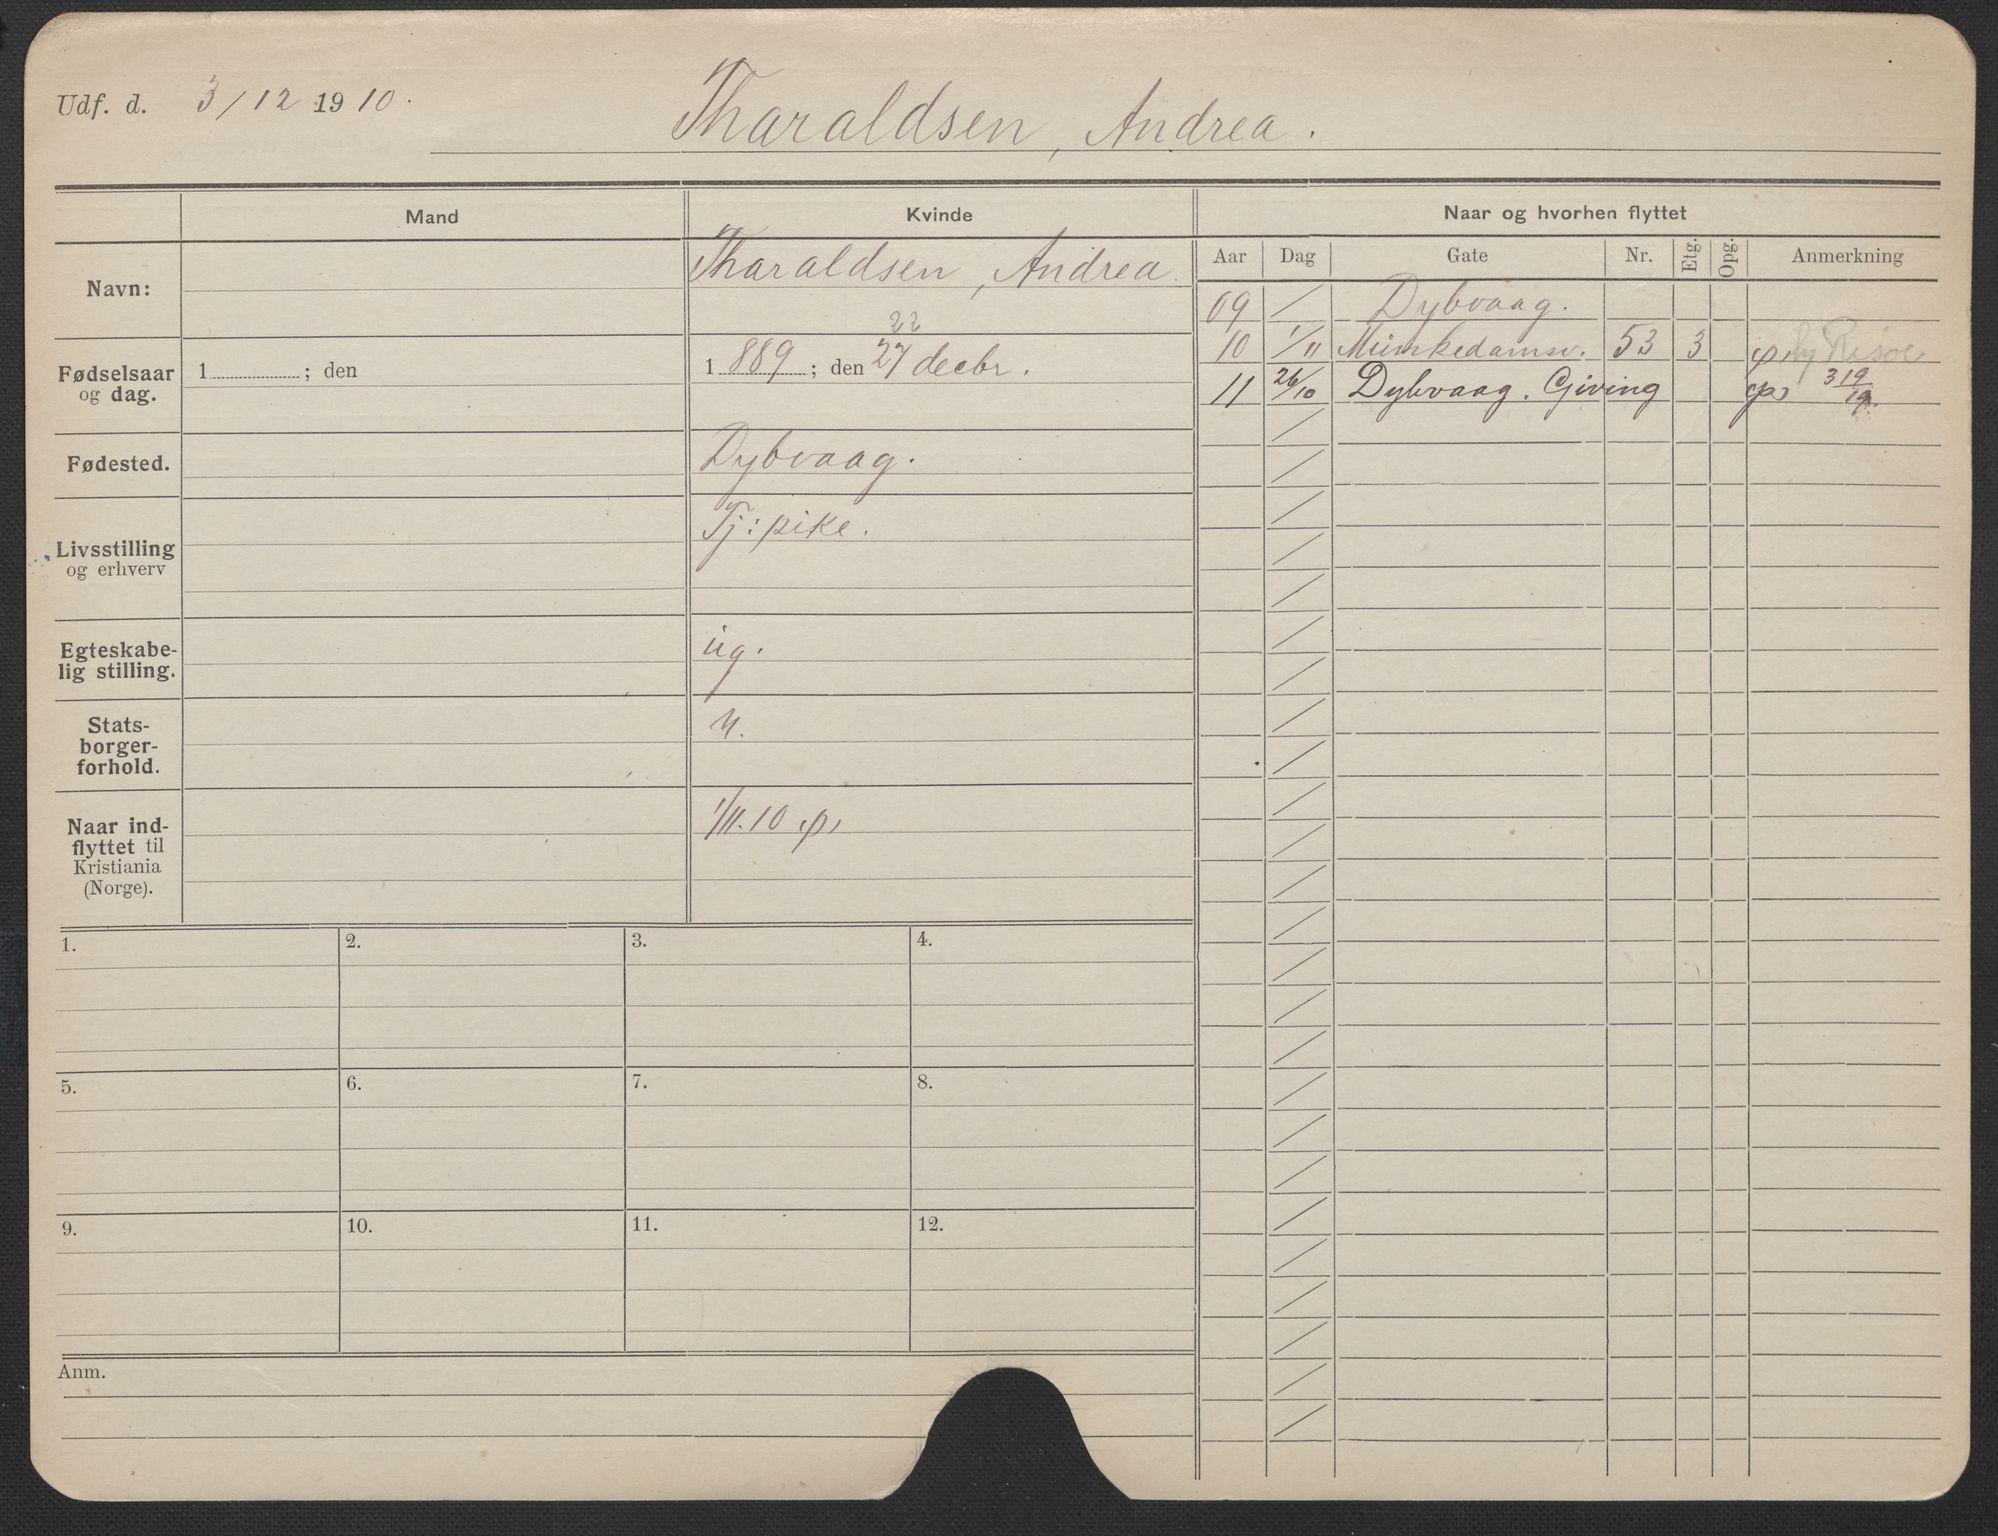 Udf. d. 3/12 1910.
Tharaldsen, Andrea.
Mand
Kvinde
Naar og hvorhen flyttet
Aar Dag Gate Nr. Etg. Opg. Anmerkning
Navn:
Tharaldsen, Andrea.
Fødselsaar og dag.
1 ; den
22
1889; den 27 decbr.
Fødested.
Dybvaag.
Livsstilling og erhverv
Tj: pike.
Egteskabe-
lig stilling.
ug.
Stats-
borger-
forhold.
n.
Naar ind-
flyttet til
Kristiania
(Norge).
1/11.10 p,
09 / Dybvaag.
10 1/11 Munkedamsv. 53 3 p, Risøe
11 26/10 Dybvaag. Giving 319/19
1. 2. 3. 4.
5. 6. 7. 8.
9. 10. 11. 12.
Anm.